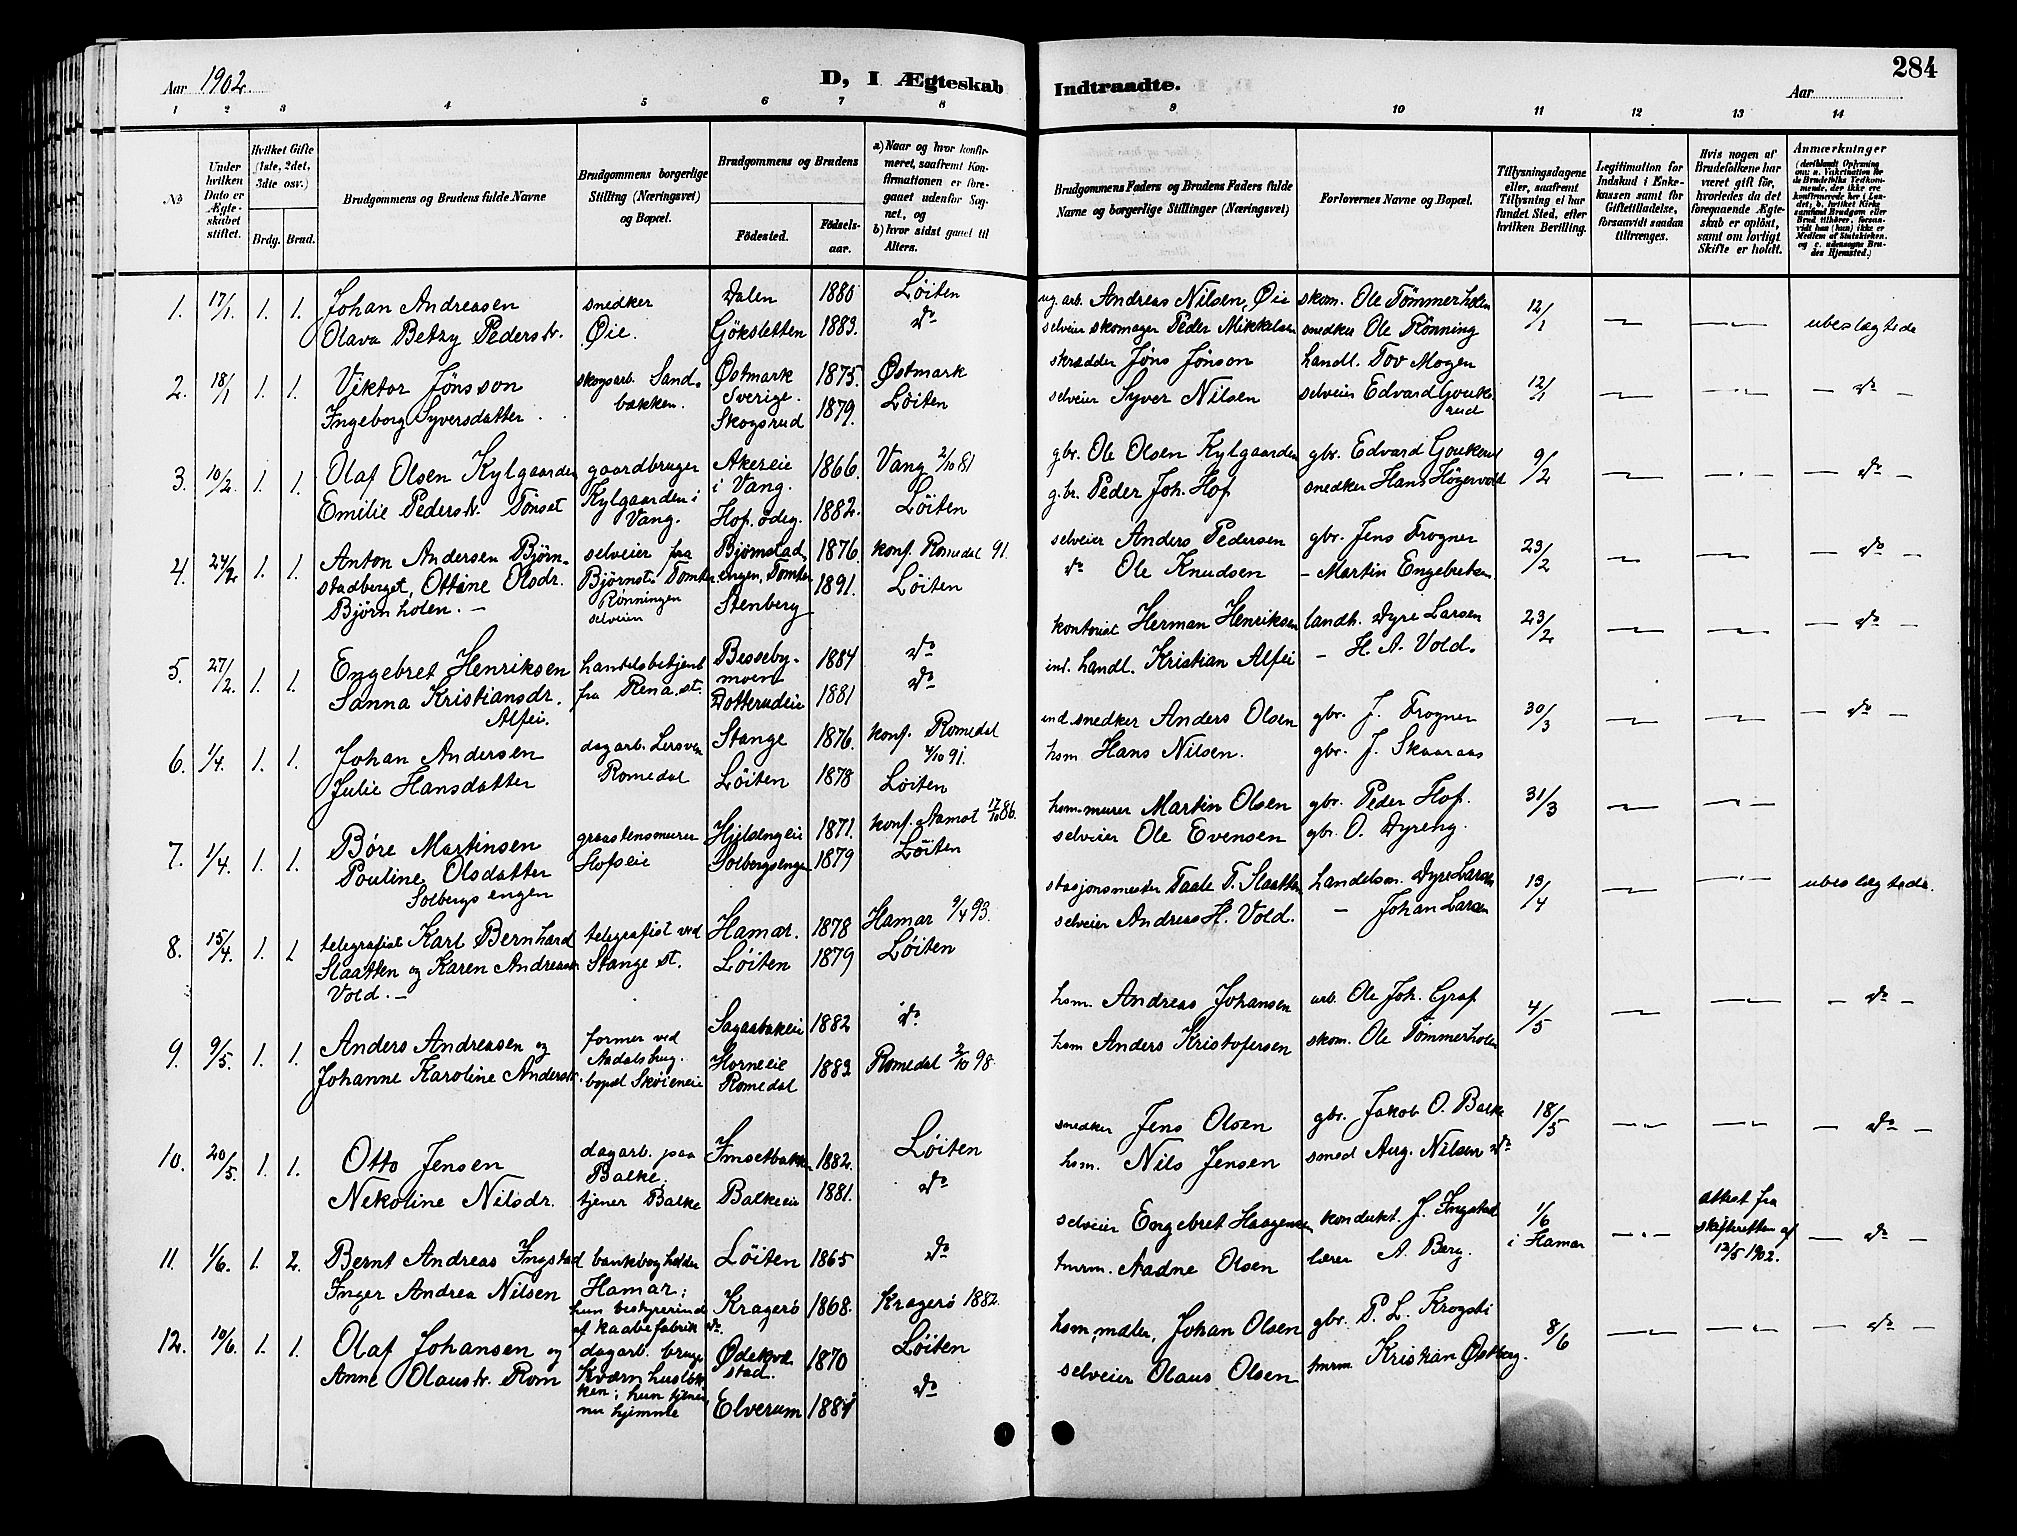 Aar 1902.
D, I Ægteskab
Indtraadte.
284
Aar
1 2 3 4 5 6 7 8
9 10 11 12 13 14
No
Under hvilken Dato er Ægteskabet stiftet.
Hvilket Gifte (1ste, 2det, 3die osv.)
Brdg. Brud.
Brudgommens og Brudens fulde Navne
Brudgommens borgerlige Stilling (Næringsvei) og Bopæl.
Brudgommens og Brudens
Fødested.
Fødselsaar.
a) Naar og hvor konfirmeret, saafremt Konfirmationen er foregaaet udenfor Sognet, og
b) hvor sidst gaaet til Alters.
Brudgommens Faders og Brudens Faders fulde Navne og borgerlige Stillinger (Næringsvei)
Forlovernes Navne og Bopæl.
Tillysningsdagene eller, saafremt Tillysning ei har fundet Sted, efter hvilken Bevilling.
Legitimation for Indskud i Enkekassen samt for Giftetilladelse, forsaavidt saadan tiltrænges.
Hvis nogen af Brudefolkene har været gift før, hvorledes da det foregaaende Ægteskab er opløst, samt om lovligt Skifte er holdt.
Anmærkninger
1. 17/1 1. 1. Johan Andreasen snedker Dalen 1880 Løiten
Andreas Nilsen, Øie skom. Ole Tömmerholen 12/1
Olava Betzy Pedersdtr. Øie. Göksletten 1883. do
selveier skomager Peder Mikkelsen snedker Ole Rönning ubeslægtede
2. 18/1 1. 1. Viktor Jönsson skogsarb. Sandbækken. Østmark Sverige. 1875. Østmark
skrædder Jöns Jönson handl. Tov Mogen 12/1
Ingeborg Syversdatter Skogsrud 1879. Løiten
selveier Syver Nilsen selveier Edvard Goukerud — do —
3. 10/2. 1. 1. Olaf Olsen Kylgaarden gaardbruger Kylgaarden i Vang. Akereie i Vang. 1866. Vang 2/10 81
gbr. Ole Olsen Kylgaarden gbr. Edvard Goukerud 9/2
Emilie Pedersdtr. Tönset Hof. ödeg. 1882. Løiten
g.br. Peder Joh. Hof snedker Hans Högervold — do —
4. 24/2 1. 1. Anton Andersen Björnstadberget, Ottine Olsdr. Björnholen. — selveier fra Björnst. Tomten. Rönningen selveien Björnstadengen, Tomten 1876. konf. Romedal 91.
selveier Anders Pedersen gbr. Jens Frogner 23/2
Stenberg 1891. Løiten
do Ole Knudsen — Martin Engebretsen — do —
5. 27/2. 1. 1. Engebret Henriksen handelsbetjent fra Rena st. Bessebymoen 1884 do
kontorist Herman Henriksen landh. Dyre Larsen 23/2
Sanna Kristiansdr. Alfei. Dotterudeie 1881 do
handl. Kristian Alfei — H. A. Vold. — do —
6. 1/4. 1. 1. Johan Andersen dagarb. Romedal Stange 1876. konf. Romedal 4/10 91.
snedker Anders Olsen gbr. J. Frogner 30/3
Julie Hansdatter Løiten 1878 Løiten
hsm Hans Nilsen. gbr. J. Skaaraas — do —
7. 1/4. 1. 1. Böre Martinsen graastensmurer Hofseie Hjeldengeie 1871. konf. Aamot 17/10 86.
hsm. murer Martin Olsen gbr. Peder Hof. 31/3
Pouline Olsdatter Solbergsengen Solbergsengen 1879 Løiten
selveier Ole Evensen gbr. O. Dyreng.
8. 15/4. 1. 1. telegrafist Karl Bernhard Slaatten og Karen Andreasdtr. Vold. — telegrafist ved Stange st. Hamar. 1878 Hamar 9/4 93.
stasjonsmester Taale T. Slaatten handelsm. Dyre Larsen 13/4
Løiten 1879 Løiten
selveier Andreas H. Vold. — Johan Larsen ubeslægtede.
9. 9/5. 1. 1. Anders Andreasen og former ved Aadalsbrug. bopæl Skøieneie Sagaabakeie 1882 do
hsm. Andreas Johansen arb. Ole Joh. Graf 4/5
Johanne Karoline Andersdtr. Horneeie Romedal 1883 Romedal 2/10 98.
hsm Anders Kristofersen skom. Ole Tömmerholen — do —
10. 20/5. 1. 1. Otto Jensen dagarb. paa Balke. Imsetbakken 1882. Løiten
snedker Jens Olsen gbr. Jakob O. Balke 18/5
Nekoline Nilsdr. tjener Balke Balkeeie 1881. do
hsm. Nils Jensen smed Aug. Nilsen do — do —
11. 1/6. 1. 2. Bernt Andreas Ingstad bankbogholder Hamar; Løiten 1865 do
selveier Engebret Haagensen kondukt. J. Ingstad 1/6 i Hamar
attest fra skifteretten af 12/5 1902.
Inger Andrea Nilsen hun bestyrerinde af kaabefabrik do. Kragerö 1868. Kragerö 1882.
tmrm. Aadne Olsen lærer A. Berg. — do —
12. 10/6. 1. 1. Olaf Johansen og dagarb. bruge Kværnhuslökken; hun tjener nu hjemme Ødekvæstad. 1870 Løiten
hsm, maler, Johan Olsen gbr. P. L. Krogsti 8/6
Anne Olausdtr. Rom Elverum 1884 do
selveier Olaus Olsen tmrm Kristian Østberg. — do —